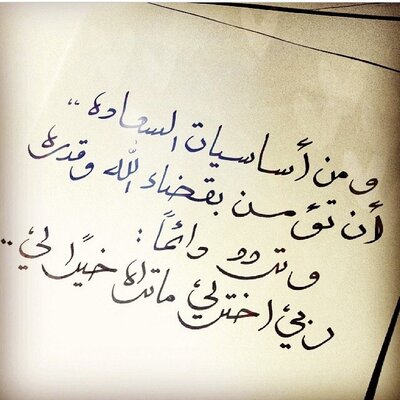 ومن أساسيات السعاده ,,
أن تؤمن بقضاء الله وقدره
وتردد دائماً :
ربي اختر لي ماتراه خيرًا لي ..